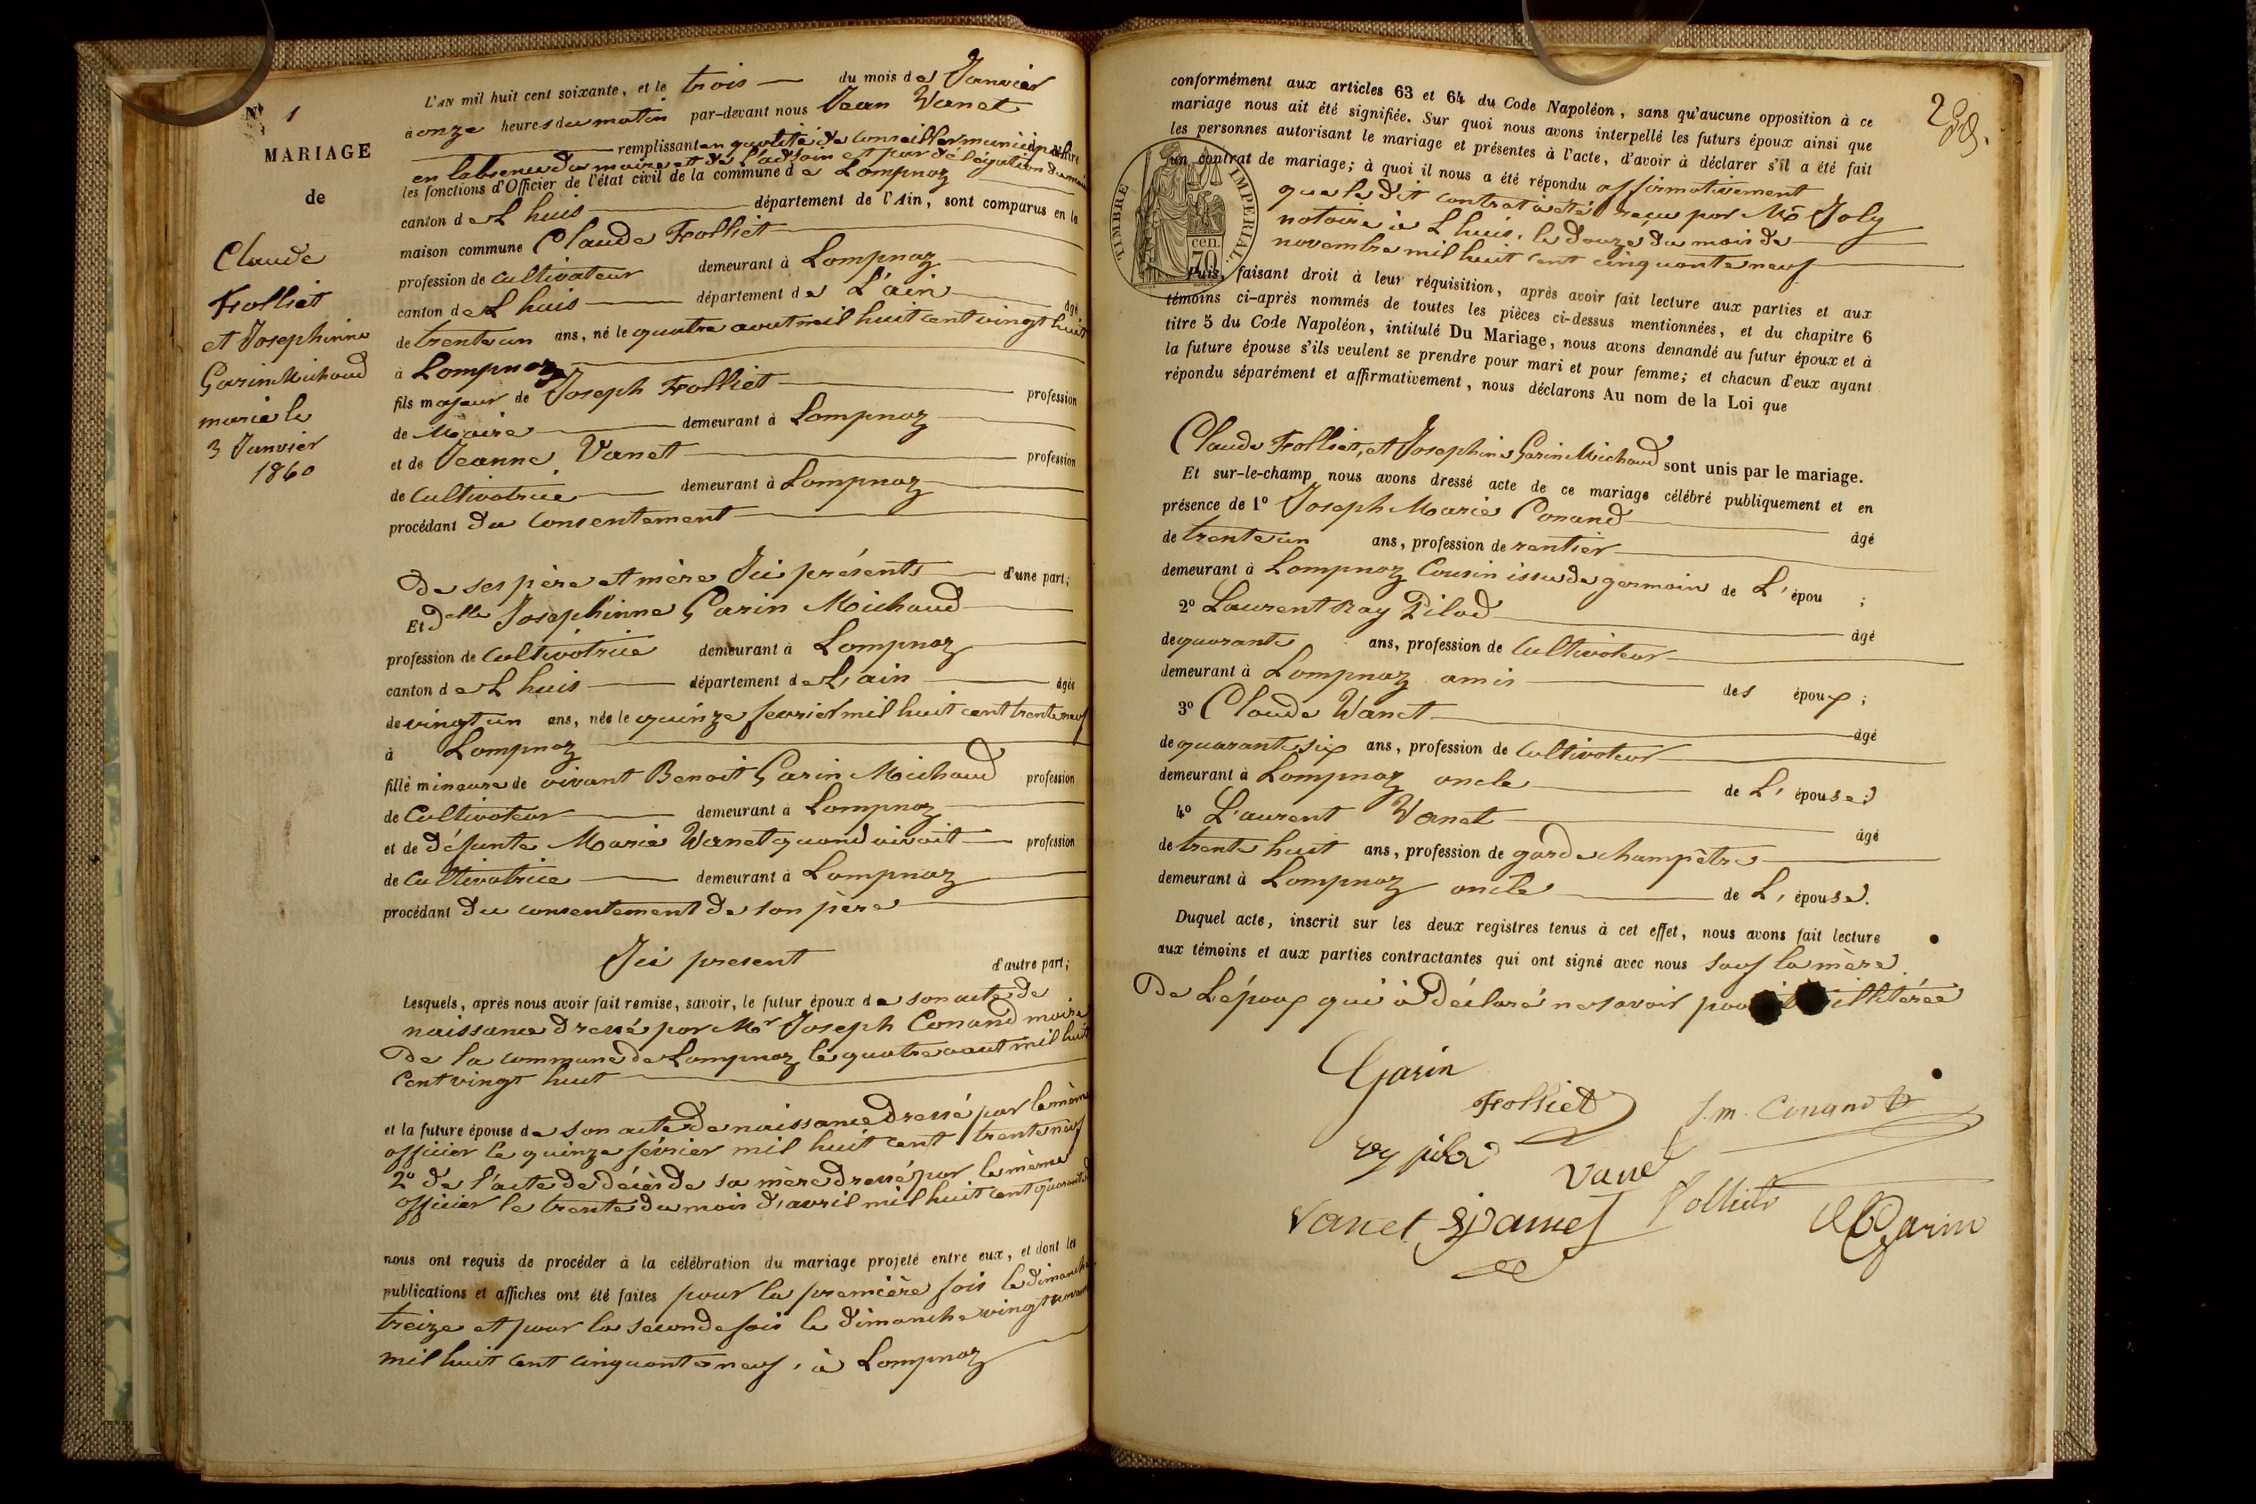 Nº 1
MARIAGE
de
Claude
Folliet
et Josephinne
Garin Michaud
marié le
3 Janvier
1860
L'AN mil huit cent soixante, et le trois du mois de Janvier
à onze heures du matin par-devant nous Jean Vanet
remplissant en qualité de conseiller municipal
en l'absence du maire et de l'adjoin et par délégation du maire
les fonctions d'Officier de l'état civil de la commune de Lompnaz
canton de Lhuis département de l'Ain, sont comparus en la
maison commune Claude Folliet
profession de cultivateur demeurant à Lompnaz
canton de Lhuis département de L'ain âgé
de trente un ans, né le quatre aout mil huit cent vingt huit
à Lompnaz
fils majeur de Joseph Folliet profession
de Maire demeurant à Lompnaz
et de Jeanne Vanet profession
de Cultivatrice demeurant à Lompnaz
procédant du consentement
de ses père et mère Ici présents d'une part;
Et delle Josephinne Garin Michaud
profession de Cultivatrice demeurant à Lompnaz
canton de Lhuis département de L'ain âgée
de vingt un ans, née le quinze fevrier mil huit cent trente neuf
à Lompnaz
fille mineure de vivant Benoit Garin Michaud profession
de Cultivateur demeurant à Lompnaz
et de défunte Marie Vanet quand vivait profession
de Cultivatrice demeurant à Lompnaz
procédant du consentement de son père
Ici present d'autre part;
Lesquels, après nous avoir fait remise, savoir, le futur époux de son acte de
naissance dressé par Mr Joseph Conand maire
de la commune de Lompnaz le quatre aout mil huit
Cent vingt huit
et la future épouse de son acte de naissance dressé par le même
officier le quinze février mil huit cent trente neuf
2º de l'acte de décès de sa mère dressé par le même
officier le trente du mois d'avril mil huit cent
nous ont requis de procéder à la célébration du mariage projeté entre eux, et dont les
publications et affiches ont été faites pour la première fois le dimanche
treize et pour la seconde fois le dimanche vingt novembre
mil huit cent cinquante neuf, à Lompnaz
conformément aux articles 63 et 64 du Code Napoléon, sans qu'aucune opposition à ce
mariage nous ait été signifiée. Sur quoi nous avons interpellé les futurs époux ainsi que
les personnes autorisant le mariage et présentes à l'acte, d'avoir à déclarer s'il a été fait
un contrat de mariage; à quoi il nous a été répondu affirmativement
que le dit contrat a été reçu par Me Joly
notaire à Lhuis, le douze du mois de
novembre mil huit cent cinquante neuf
TIMBRE IMPÉRIAL
70 cen.
Puis, faisant droit à leur réquisition, après avoir fait lecture aux parties et aux
témoins ci-après nommés de toutes les pièces ci-dessus mentionnées, et du chapitre 6
titre 5 du Code Napoléon, intitulé Du Mariage, nous avons demandé au futur époux et à
la future épouse s'ils veulent se prendre pour mari et pour femme; et chacun d'eux ayant
répondu séparément et affirmativement, nous déclarons Au nom de la Loi que
Claude Folliet, et Josephine Garin Michaud sont unis par le mariage.
Et sur-le-champ nous avons dressé acte de ce mariage célébré publiquement et en
présence de 1º Joseph Marie Conand âgé
de trente un ans, profession de rentier
demeurant à Lompnaz Cousin issu de germain de L'épou ;
2º Laurent Ray Pilod âgé
de quarante ans, profession de Cultivateur
demeurant à Lompnaz amis des époux ;
3º Claude Vanet âgé
de quarante six ans, profession de Cultivateur
demeurant à Lompnaz oncle de L'épouse;
4º Laurent Vanet âgé
de trente huit ans, profession de garde champêtre
demeurant à Lompnaz oncle de L'épouse.
Duquel acte, inscrit sur les deux registres tenus à cet effet, nous avons fait lecture
aux témoins et aux parties contractantes qui ont signé avec nous sauf la mère
De L'époux qui à déclaré ne savoir pour illitérée
Garin
Folliet
J. m. Conand
Vanet
Folliet
Garin